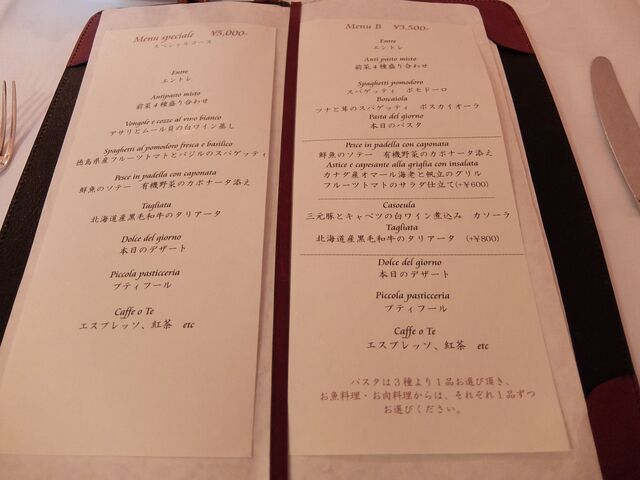 Menu speciale ¥5,000-
スペシャルコース
Entre
エントレ
Antipasto misto
前菜４種盛り合わせ
Vongole e cozze al vivo bianco
アサリとムール貝の白ワイン蒸し
Spaghetti al pomodoro fresca e basilico
徳島県産フルーツトマトとバジルのスパゲッティ
Pesce in padella con caponata
鮮魚のソテー　有機野菜のカポナータ添え
Tagliata
北海道産黒毛和牛のタリアータ
Dolce del giorno
本日のデザート
Piccola pasticceria
プティフール
Caffe o Te
エスプレッソ、紅茶　etc
Menu B ¥3,500-
Entre
エントレ
Anti pasto misto
前菜４種盛り合わせ
Spaghetti pomodoro
スパゲッティ　ポモドーロ
Boscaiola
ツナと茸のスパゲッティ　ボスカイオーラ
Pasta del giorno
本日のパスタ
Pesce in padella con caponata
鮮魚のソテー　有機野菜のカポナータ添え
Astice e capesante alla griglia con insalata
カナダ産オマール海老と帆立のグリル
フルーツトマトのサラダ仕立て(+¥600)
Casoeula
三元豚とキャベツの白ワイン煮込み　カソーラ
Tagliata
北海道産黒毛和牛のタリアータ　(+¥800)
Dolce del giorno
本日のデザート
Piccola pasticceria
プティフール
Caffe o Te
エスプレッソ、紅茶　etc
パスタは３種より１品お選び頂き、
お魚料理・お肉料理からは、それぞれ１品ずつ
お選びください。